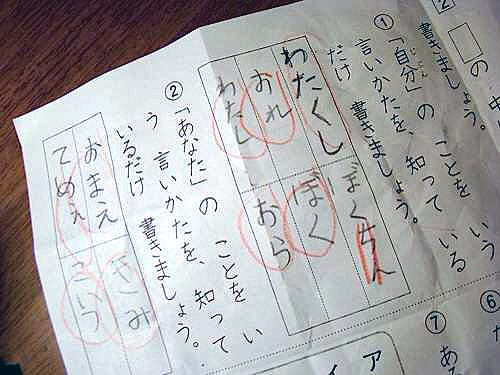 2
□の中
書きましょう。
① 「自分」の ことを いう
じぶん
言いかたを、知って いる
だけ 書きましょう。
わたくし
おれ
わたし
ぼくちん
ぼく
おら
② 「あなた」の ことを い
う 言いかたを、知って
いるだけ 書きましょう。
おまえ
てめえ
きみ
こいつ
⑥
⑦
ある
ア
イ